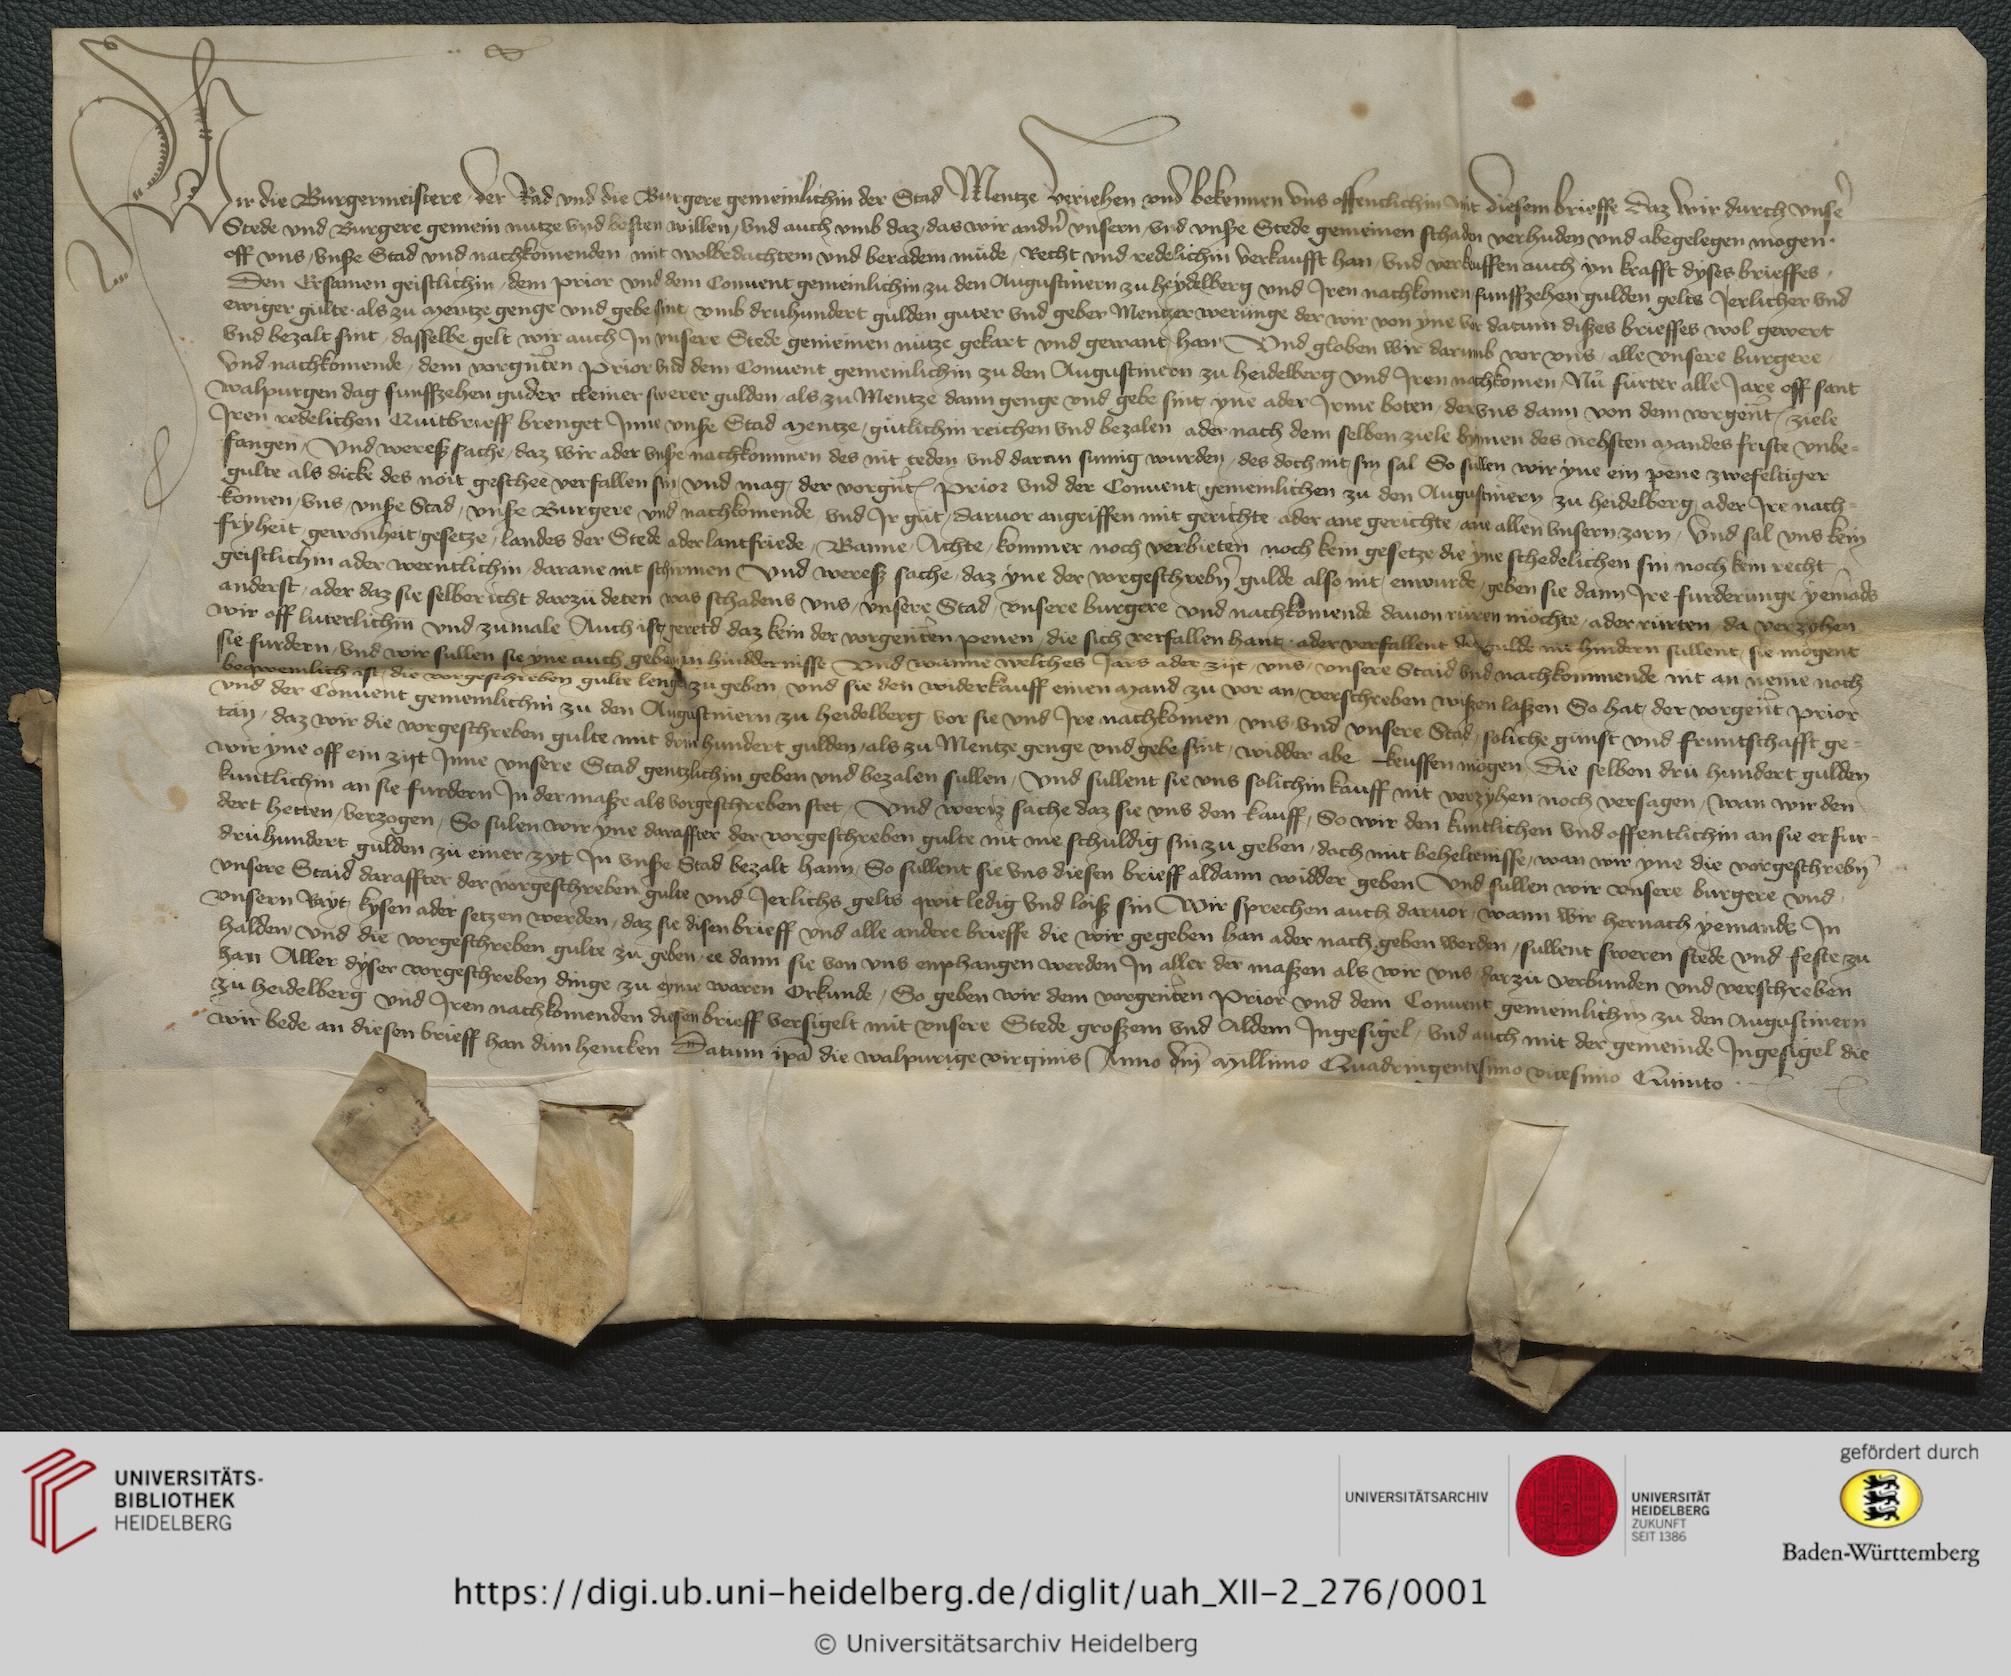 Wir die Burgermeistere / der Rad vnd die Burgere gemeinlichin der Stad Mentze veriehen vnd bekennen vns offentlichin mit diesem brieffe daz wir durch vnſ̄e
Stede vnd Burgere gemein nutze vnd besten willen / vnd auch vmb daz / das wir andn̄ vnsern / vnd vnße Stede gemeinen schaden verhuden vnd abegelegen mogen ·
off vns / vnße Stad vnd nachkomenden mit wolbedachtem vnd beradem müde / Recht vnd redelichin verkaufft han / vnd verkeuffen auch yn krafft dyses brieffes /
Den Ersamen geistlichin / dem prior vnd dem Conuent gemeinlichin zu den Augustinern zu heydelberg vnd Jren nachkomen funffzehen gulden gelts Jerlicher vnd
ewiger gulte · als zu Mentze genge vnd gebe sint vmb druhundert gulden guter vnd geber Mentzer werunge der wir von yne vor datum dißes brieffes wol gewert
vnd bezalt sint / dasselbe gelt wir auch Jn vnsere Stede gemeinen nutze gekart vnd gewant han Vnd globen wir darumb vor vns / alle vnsere burgere /
vnd nachkomende / dem vorgnten̄ Prior vnd dem Conuent gemeinlichin zu den Augustinern zu heidelberg vnd Jren nachkomen / Nů fürter alle Jare off sant
walpurgen dag funffzehen guder cleiner swerer gulden / als zu Mentze dann genge vnd gebe sint yne ader Jrme boten / der vns dann von dem vorgent̄ ziele
Jren redelichen Quitbrieff brenget Jnne vnße Stad Mentze / gütlichin reichen vnd bezalen ader nach dem selben ziele bynnen des nehsten mandes friste vnbe-
fangen / Vnd wereß sache / daz wir ader vnße nachkommen des nit teden vnd daran sumig wurden / des doch nit sin sal So sullen wir yne ein pene zwefeltiger
gulte als dicke des noit geschee verfallen sin vnd mag / der vorgnt̄ Prior vnd der Conuent gemeinlichen zu den Augustinern zu heidelberg / ader Jre nach-
komen / vns / vnße Stad / vnße Burgere vnd nachkomende vnd Jr güt / daruor angriffen mit gerichte ader ane gerichte / ane allen vnsern zorn / Vnd sal vns kein
fryheit / gewonheit / gesetze / landes der Stede ader lantfriede / Banne / Achte / kommer noch verbieten noch kein gesetze die yne schedelichen sin noch kein recht
geistlichin ader werntlichin / darane nit schirmen Vnd wereß sache / daz yne der vorgeschrebn̄ gulde also nit enwurde / geben sie dann Jre furderunge yemads
anderst / ader daz sie selber icht darzü deten was schadens vns / vnsere Stad / vnsere burgere vnd nachkomende dauon rüren möchte / ader rürten / da verzyhen
wir off luterlichin vnd zumale Auch ist geretd daz kein der vorgenten̄ penen / die sich verfallen hant / ader verfallent die gulde nit hindern sullent / sie mögent
sie furdern / vnd wir sullen sie yne auch geben an hinddernisse Vnd wanne welches Jars ader zijt / vns / vnsere Staid vnd nachkommende nit an neme noch
beqwemlich ist / die vorgeschreben gulte lenger zu geben vnd sie den widerkauff einen mand zu vor an / verschreben wißen laßen So hat / der vorgent̄ prior
vnd der Conuent gemeinlichin zu den Augustinern zu heidelberg / vor sie vnd Jre nachkomen vns / vnd vnsere Stad / soliche gunst vnd fruntschafft ge-
tan / daz wir die vorgeschreben gulte mit druhundert gulden / als zu Mentze genge vnd gebe sint / widder abe keuffen mögen Die selben dru hundert gulden
wir yne off ein zijt Jnne vnsere Stad gentzlichin geben vnd bezalen sullen / Vnd sullent sie vns solichin kauff nit verzyhen noch versagen / wan wir den
kuntlichin an sie furdern Jn der maße als vorgeschreben stet / Vnd weriz sache daz sie vns den kauff / So wir den kuntlichen vnd offentlichin an sie erfur-
dert hetten / verzogen / So sulen wir yne daraffter der vorgeschreben gulte nit me schuldig sin zu geben / doch mit beheltenisse / wan wir yne die vorgeschrebn̄
druhundert gulden zü einer zyt Jn vnße Stad bezalt hann / So sullent sie vns diesen brieff aldann widder geben Vnd sullen wir vnsere burgere vnd /
vnsere Staid daraffter der vorgeschreben gulte vnd Jerlichs gelts qwit ledig vnd loiß sin Wir sprechen auch daruor / wann wir hernach yemands Jn
vnsern Rayt / kysen ader setzen werden / daz sie disen brieff vnd alle andere brieffe die wir gegeben han ader nach geben werden / sullent sweren stede vnd feste zu
halden vnd die vorgeschreben gulte zü geben / ee dann sie von vns enphangen werden Jn aller der maßen als wir vns darzü verbunden vnd verschreben
han Aller dyser vorgeschreben dinge zu eyme waren Orkunde / So geben wir dem vorgenten̄ Prior vnd dem Conuent gemeinlichin zu den Augustinern
zü heidelberg vnd Jren nachkomenden diesen brieff versigelt mit vnsere Stede großem vnd Aldem Jngesigel / vnd auch mit der gemeinde Jngesigel die
wir bede an diesen brieff han dün hencken Datum ip̄a die walpurige virginis Anno dn̄i Millimo Quadringentesimo vicesimo Quinto ·
UNIVERSITÄTS-
BIBLIOTHEK
HEIDELBERG
UNIVERSITÄTSARCHIV
UNIVERSITÄT
HEIDELBERG
ZUKUNFT
SEIT 1386
gefördert durch
Baden-Württemberg
https://digi.ub.uni-heidelberg.de/diglit/uah_XII-2_276/0001
© Universitätsarchiv Heidelberg